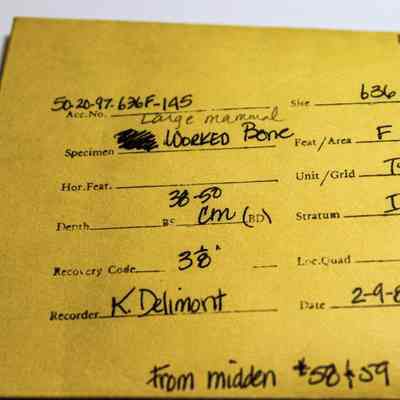 50-20-97.636F-145
Acc.No. Site 636
Large mammal
Specimen Worked Bone Feat/Area F
Hor.Feat. Unit/Grid
38-50
Depth BS cm (BD) Stratum I
Recovery Code 3 1/8" Loc.Quad
Recorder K. Delimont Date 2-9-8
From midden #58 & 59